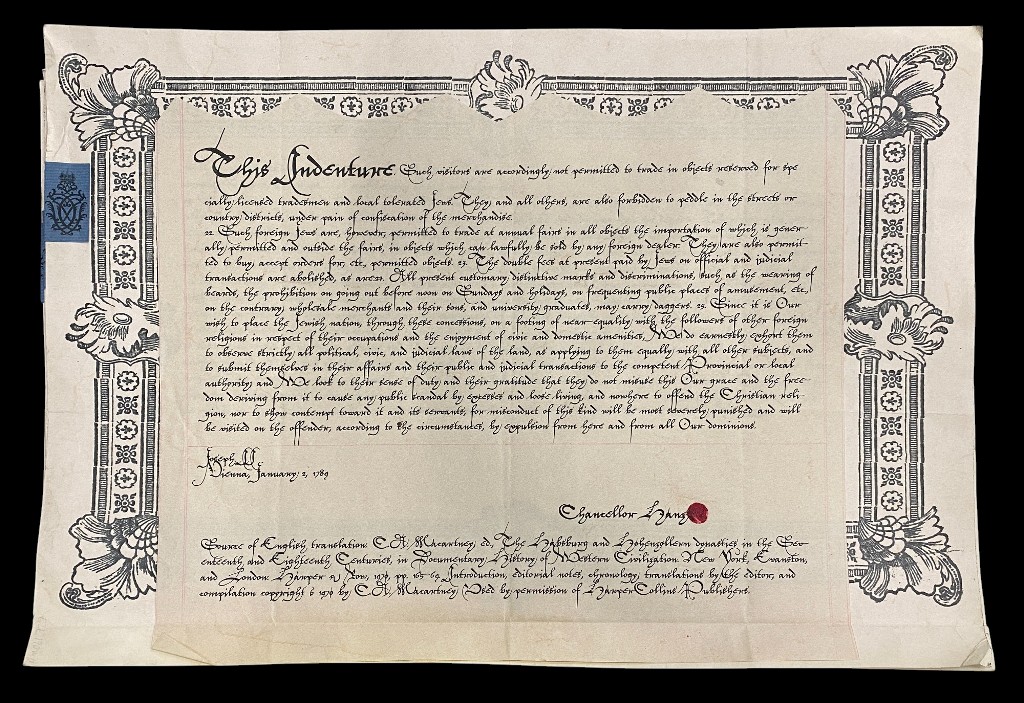 This Indenture Such visitors are accordingly not permitted to trade in objects reserved for spe
cially licensed tradesmen and local tolerated Jews. They and all others, are also forbidden to peddle in the streets or
country districts, under pain of confiscation of the merchandise.
22. Such foreign Jews are, however, permitted to trade at annual fairs in all objects the importation of which is gener-
ally permitted and outside the fairs, in objects which can lawfully be sold by any foreign dealer. They are also permit-
ted to buy, accept orders for, etc. permitted objects. 23. The double fees at present paid by Jews on official and judicial
transactions are abolished, as are 24. All present customary distinctive marks and discriminations, such as the wearing of
beards, the prohibition on going out before noon on Sundays and holidays, on frequenting public places of amusement, etc.;
on the contrary, wholesale merchants and their sons, and university graduates, may carry daggers. 25. Since it is Our
wish to place the Jewish nation, through these concessions, on a footing of near equality with the followers of other foreign
religions in respect of their occupations and the enjoyment of civic and domestic amenities, We do earnestly exhort them
to observe strictly all political, civic, and judicial laws of the land, as applying to them equally with all other subjects, and
to submit themselves in their affairs and their public and judicial transactions to the competent Provincial or local
authority; and We look to their sense of duty and their gratitude that they do not misuse this Our grace and the free-
dom deriving from it to cause any public scandal by excesses and loose living, and nowhere to offend the Christian reli-
gion, nor to show contempt toward it and its servants, for misconduct of this kind will be most severely punished and will
be visited on the offender, according to the circumstances, by expulsion from here and from all Our dominions.
Joseph II.
Vienna, January 2, 1789
Chancellor
Source of English translation: C.A. Macartney, ed., The Habsburg and Hohenzollern dynasties in the Sev-
enteenth and Eighteenth Centuries, in Documentary History of Western Civilization. New York, Evanston,
and London: Harper & Row, 1970, pp. Introduction, editorial notes, chronology, translations by the editor; and
compilation copyright © 1970 by C.A. Macartney. Used by permission of HarperCollins Publishers.